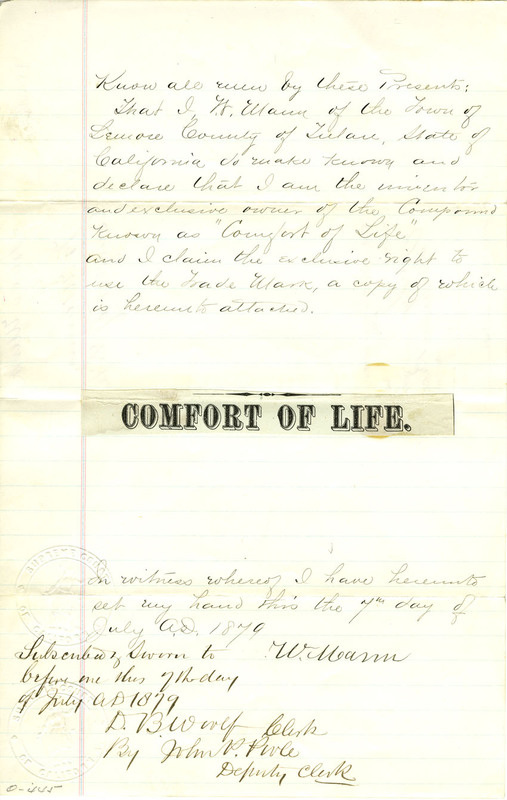 Know all men by these Presents;
That I, W. Mann of the Town of
Lemore County of Tulare, State of
California do make known and
declare that I am the inventor
and exclusive owner of the Compound
known as "Comfort of Life"
and I claim the exclusive right to
use the Trade Mark, a copy of which
is hereunto attached.
COMFORT OF LIFE.
In witness whereof I have hereunto
set my hand this the 7th day of
July A.D. 1879
W. Mann
Subscribed & Sworn to
before me this 7th day
of July AD 1879
D. B. Woolf Clerk
By John P. Poole
Deputy Clerk